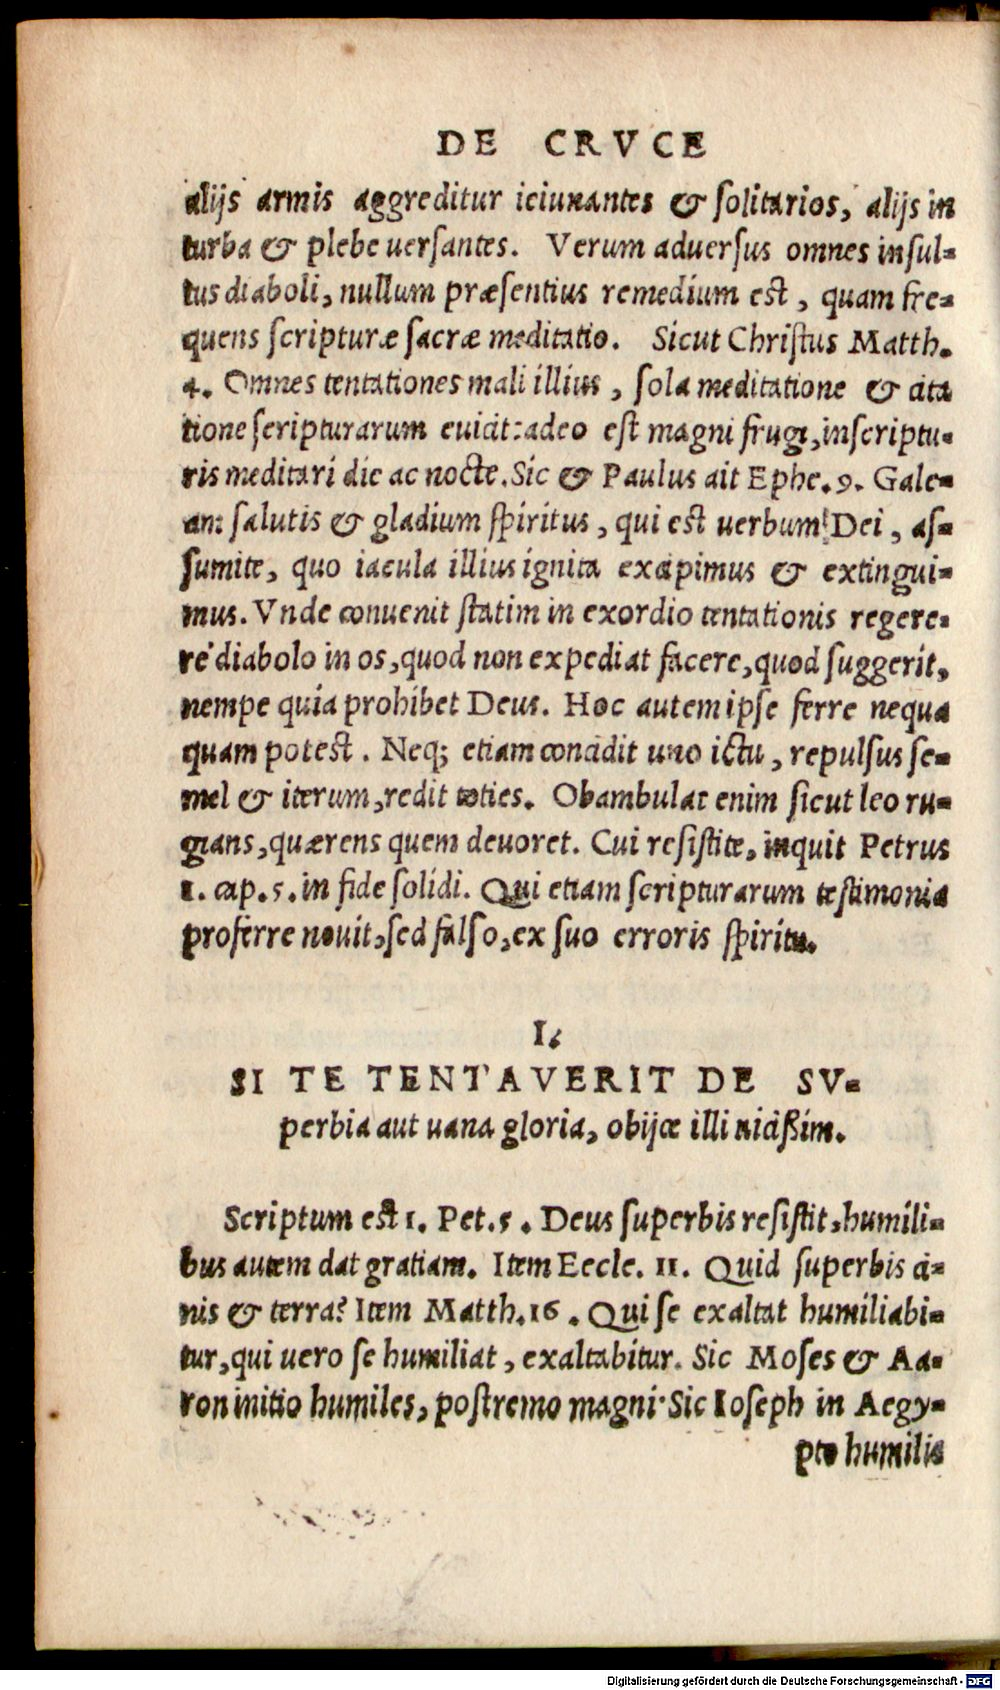 DE CRVCE
alijs armis aggreditur ieiunantes & solitarios, alijs in
turba & plebe uersantes. Verum aduersus omnes insul-
tus diaboli, nullum præsentius remedium est, quam fre-
quens scripturæ sacræ meditatio. Sicut Christus Matth.
4. Omnes tentationes mali illius, sola meditatione & cita
tione scripturarum euicit: adeo est magni frugi, in scriptu-
ris meditari die ac nocte. Sic & Paulus ait Ephe. 9. Gale-
am salutis & gladium spiritus, qui est uerbum Dei, as-
sumite, quo iacula illius ignita excipimus & extingui-
mus. Vnde conuenit statim in exordio tentationis regere-
re diabolo in os, quod non expediat facere, quod suggerit,
nempe quia prohibet Deus. Hoc autem ipse ferre nequa
quam potest. Neq; etiam concidit uno ictu, repulsus se-
mel & iterum, redit toties. Obambulat enim sicut leo ru-
gians, quærens quem deuoret. Cui resistite, inquit Petrus
1. cap. 5. in fide solidi. Qui etiam scripturarum testimonia
proferre nouit, sed falso, ex suo erroris spiritu.
I.
SI TE TENTAVERIT DE SV-
perbia aut uana gloria, obijce illi uicißim.
Scriptum est 1. Pet. 5. Deus superbis resistit, humili-
bus autem dat gratiam. Item Eccle. 11. Quid superbis ci-
nis & terra? Item Matth. 16. Qui se exaltat humiliabi-
tur, qui uero se humiliat, exaltabitur. Sic Moses & Aa-
ron initio humiles, postremo magni. Sic Ioseph in Aegy-
pto humilis
Digitalisierung gefördert durch die Deutsche Forschungsgemeinschaft - DFG